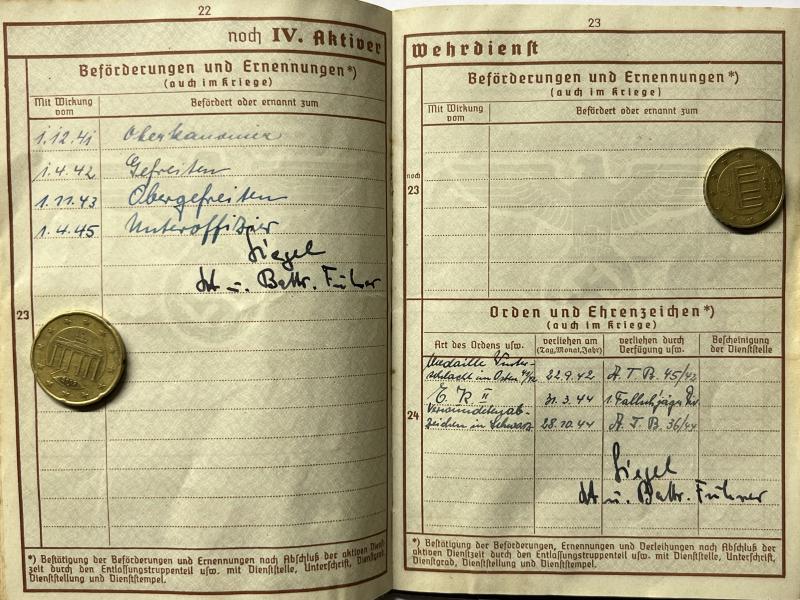 22
noch IV. Aktiver
Beförderungen und Ernennungen*)
(auch im Kriege)
Mit Wirkung vom
Befördert oder ernannt zum
1.12.41 Oberkanonier
1.4.42 Gefreiten
1.11.43 Obergefreiten
1.4.45 Unteroffizier
Siegel
Lt u. Battr. Führer
23
*) Bestätigung der Beförderungen und Ernennungen nach Abschluß der aktiven Dienst-
zeit durch den Entlassungstruppenteil usw. mit Dienststelle, Unterschrift, Dienstgrad,
Dienststellung und Dienststempel.
23
Wehrdienst
Beförderungen und Ernennungen*)
(auch im Kriege)
Mit Wirkung vom
Befördert oder ernannt zum
noch
23
Orden und Ehrenzeichen*)
(auch im Kriege)
Art des Ordens usw.
verliehen am
(Tag, Monat, Jahr)
verliehen durch
Verfügung usw.
Bescheinigung
der Dienststelle
Medaille Winter-
schlacht im Osten 41/42 22.9.42 A.T.B. 45/42
E.K. II 31.3.44 1. Fallschjäger
Verwundetenab-
zeichen in Schwarz 28.10.44 A.T.B. 36/44
24
Siegel
Lt u. Battr. Führer
*) Bestätigung der Beförderungen, Ernennungen und Verleihungen nach Abschluß der
aktiven Dienstzeit durch den Entlassungstruppenteil usw. mit Dienststelle, Unterschrift,
Dienstgrad, Dienststellung und Dienststempel.